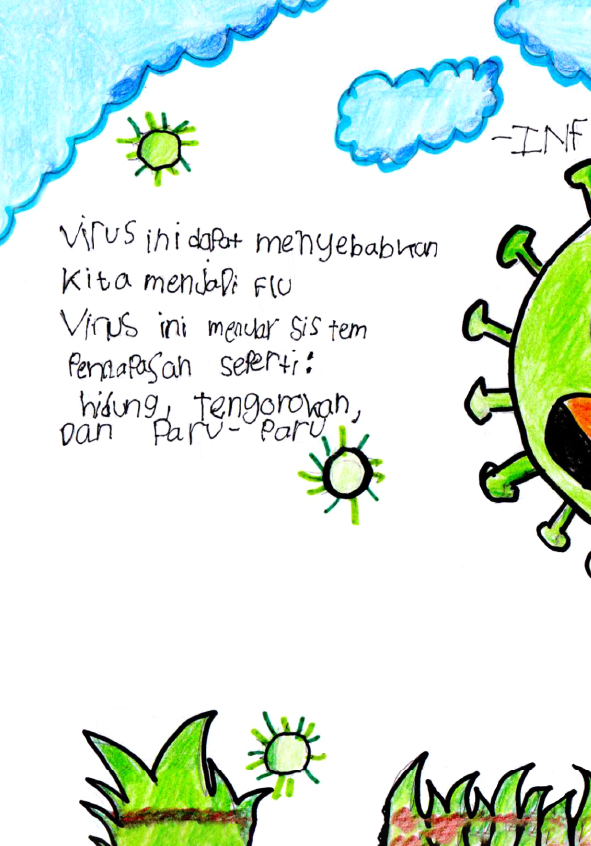 -INF
Virus ini dapat menyebabkan
Kita menjadi FlU
Virus ini menular sistem
Pernapasan seperti:
hidung, tengorokan,
Dan Paru-Paru